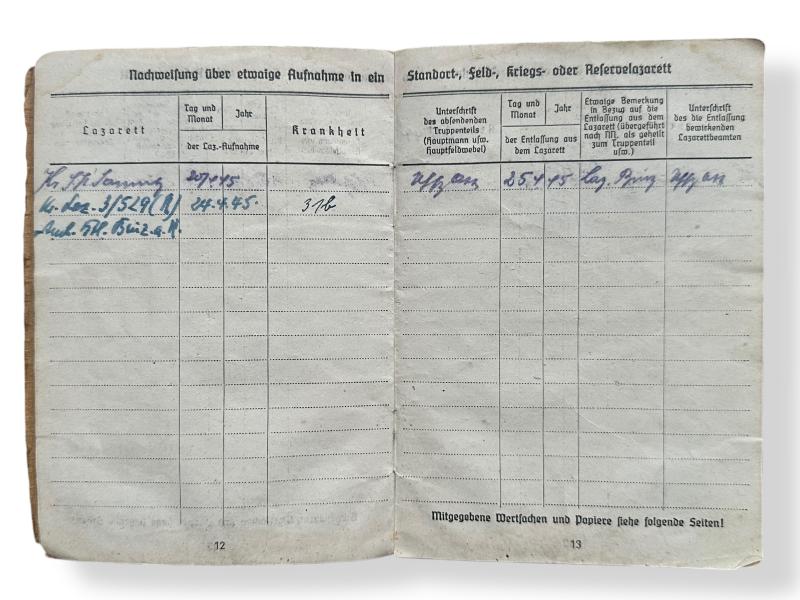 Nachweisung über etwaige Aufnahme in ein
Lazarett
Tag und Monat
Jahr
der Laz.-Aufnahme
Krankheit
20 4 45
Kr. Laz. 3/529 (R)
24.4.45.
31b
Binz a. R.
12
Standort-, Feld-, Kriegs- oder Reservelazarett
Unterschrift
des absendenden
Truppenteils
(Hauptmann usw.
Hauptfeldwebel)
Tag und
Monat
Jahr
der Entlassung aus
dem Lazarett
Etwaige Bemerkung
in Bezug auf die
Entlassung aus dem
Lazarett (übergeführt
nach M. als geheilt
zum Truppenteil
usw.)
Unterschrift
des die Entlassung
bewirkenden
Lazarettbeamten
Uffz
25 4 45
Laz. Binz
Uffz
Mitgegebene Wertsachen und Papiere siehe folgende Seiten!
13